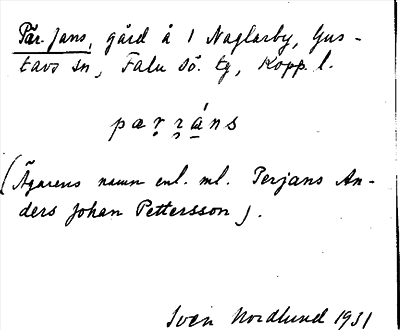 Pär Jans, gård å 1 Naglarby, Gus-
tavs sn, Falu sö. tg, Kopp. l.
pạṛẓáns
(Ägarens namn enl. ml. Perjans An-
ders Johan Pettersson).
Sven Nordlund 1931